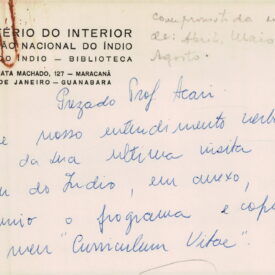 TÉRIO DO INTERIOR
ÃO NACIONAL DO ÍNDIO
DO ÍNDIO — BIBLIOTECA
ATA MACHADO, 127 — MARACANÃ
DE JANEIRO — GUANABARA
comprometida
de: Abril, Maio
Agosto.
Prezado Prof. Acari:
e nosso entendimento verb
da sua ultima visita
u do Indio, em anexo,
o programa e cópi
meu "Curriculum Vitae".